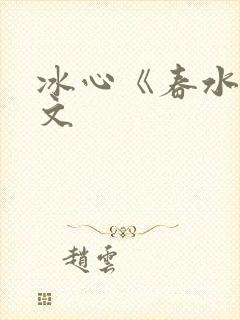 冰心《春水
文
趙雲